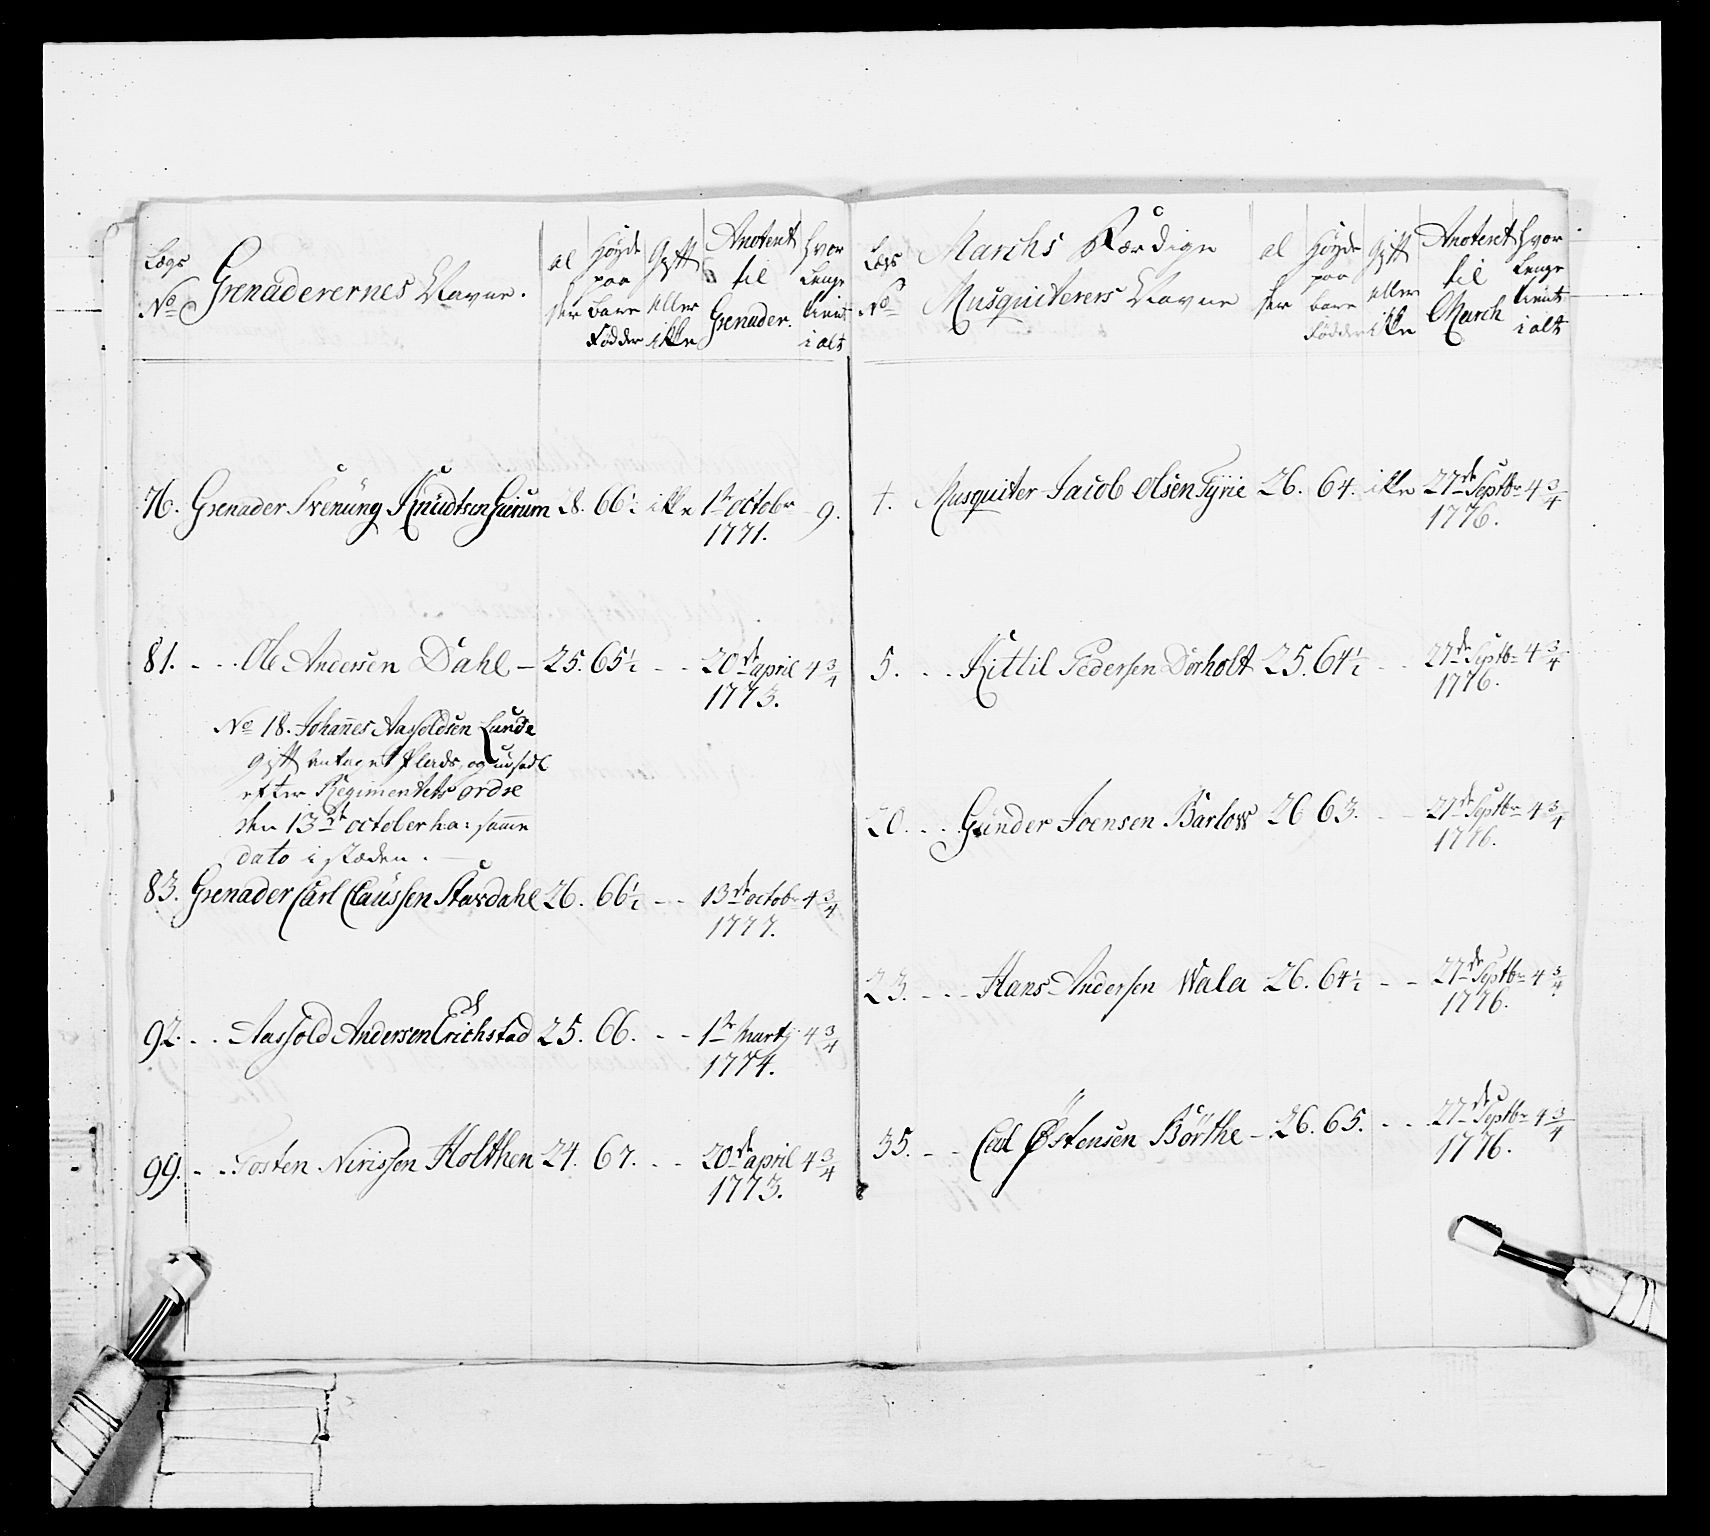 Lægs
No
Grenaderernes Navne.
al
der
Höyde
paa
bare
Födder
Gift
eller
ikke
Anotent
til
Grenader.
hvor
Lenge
tient
i alt
76. Grenader Svenüng Knüdtsen Gierum 28. 66½ ikke 1ste octobr 9.
1771.
81. - - . Ole Andersen Dahl - 25. 65½ - - 20de april 4 3/4
1773.
No 18. Johannes Aasoldsen Lunde
gift antaget Plads, og
efter Regimentets ordre
den 13de october ha: samme
dato i stæden.
83. Grenader Carl Claüssen Stavdahl 26. 66½ - - 13de octobr 4 3/4
1777.
92. . . Aasold Andersen Erichstad 25. 66. - - 1ste Marty 4 3/4
1774.
99. - - Tosten Nirissen Holthen 24. 67. - - 20de april 4 3/4
1773.
Lægs
No
Marchs Færdige
Musquiterers Navne
al
der
Höyde
paa
bare
Födder
Gift
eller
ikke
Anotent
til
March
hvor
Lenge
tient
i alt
4. Musquiter Jacob Olsen Tyrie 26. 64. ikke 27de Septbr 4 3/4
1776.
5. . . Kittil Pedersen Dorholt 25. 64½ - - 27de Septbr 4 3/4
1776.
20. . . Günder Joensen Barlow 26 63. - - 27de Septbr 4 3/4
1776.
23. - - - Hans Andersen Wala 26. 64½ - - 27de Septbr 4 3/4
1776.
35. - - Carl Östensen Börthe - 26. 65. - - 27de Septbr 4 3/4
1776.